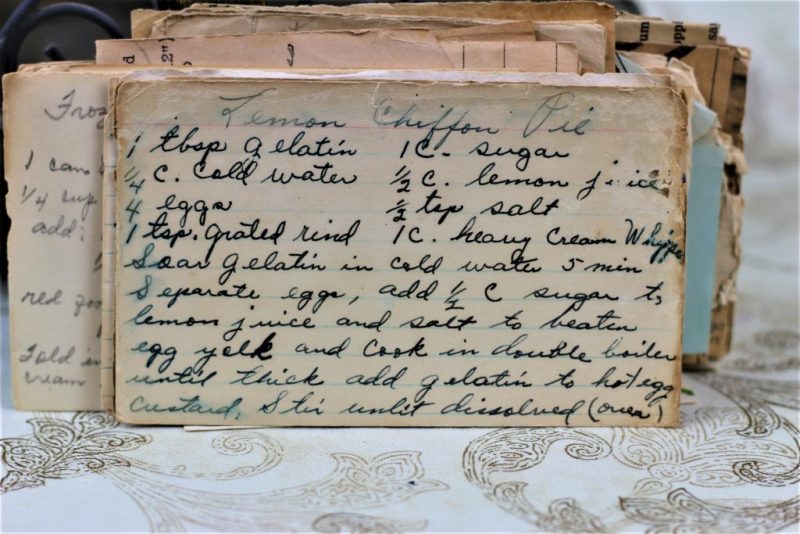 Lemon Chiffon Pie
1 tbsp gelatin 1 C. sugar
1/4 c. cold water 1/2 c. lemon juice
4 eggs 1/2 tsp salt
1 tsp. grated rind 1 C. heavy cream Whipped
Soak gelatin in cold water 5 min
Separate eggs, add 1/2 C sugar to
lemon juice and salt to beaten
egg yolk and cook in double boiler
until thick add gelatin to hot egg
custard, Stir until dissolved (over)
Froz
1 can
1/4 cup
add:
red
Fold in
cream